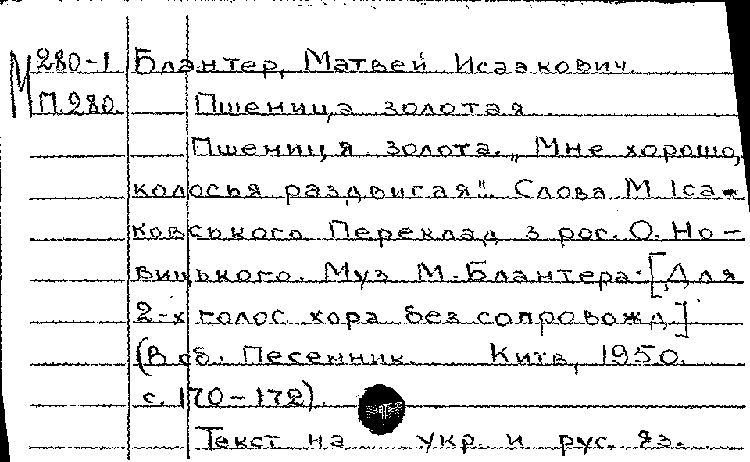 М 280-1 Блантер, Матвей Исаакович.
П.280. Пшеница золотая
Пшениця золота. „Мне хорошо,
колосья раздвигая". Слова М. Іса-
ковського Переклад з рос. О. Но-
вицького. Муз М. Блантера. [Для
2-х голос хора без сопровожд.]
(В сб. Песенник. Київ, 1950.
с. 170-172).
Текст на укр. и рус. яз.